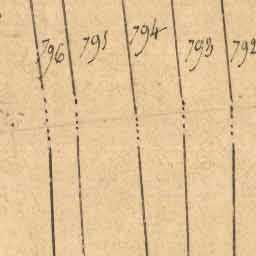 796 795 794 793 792